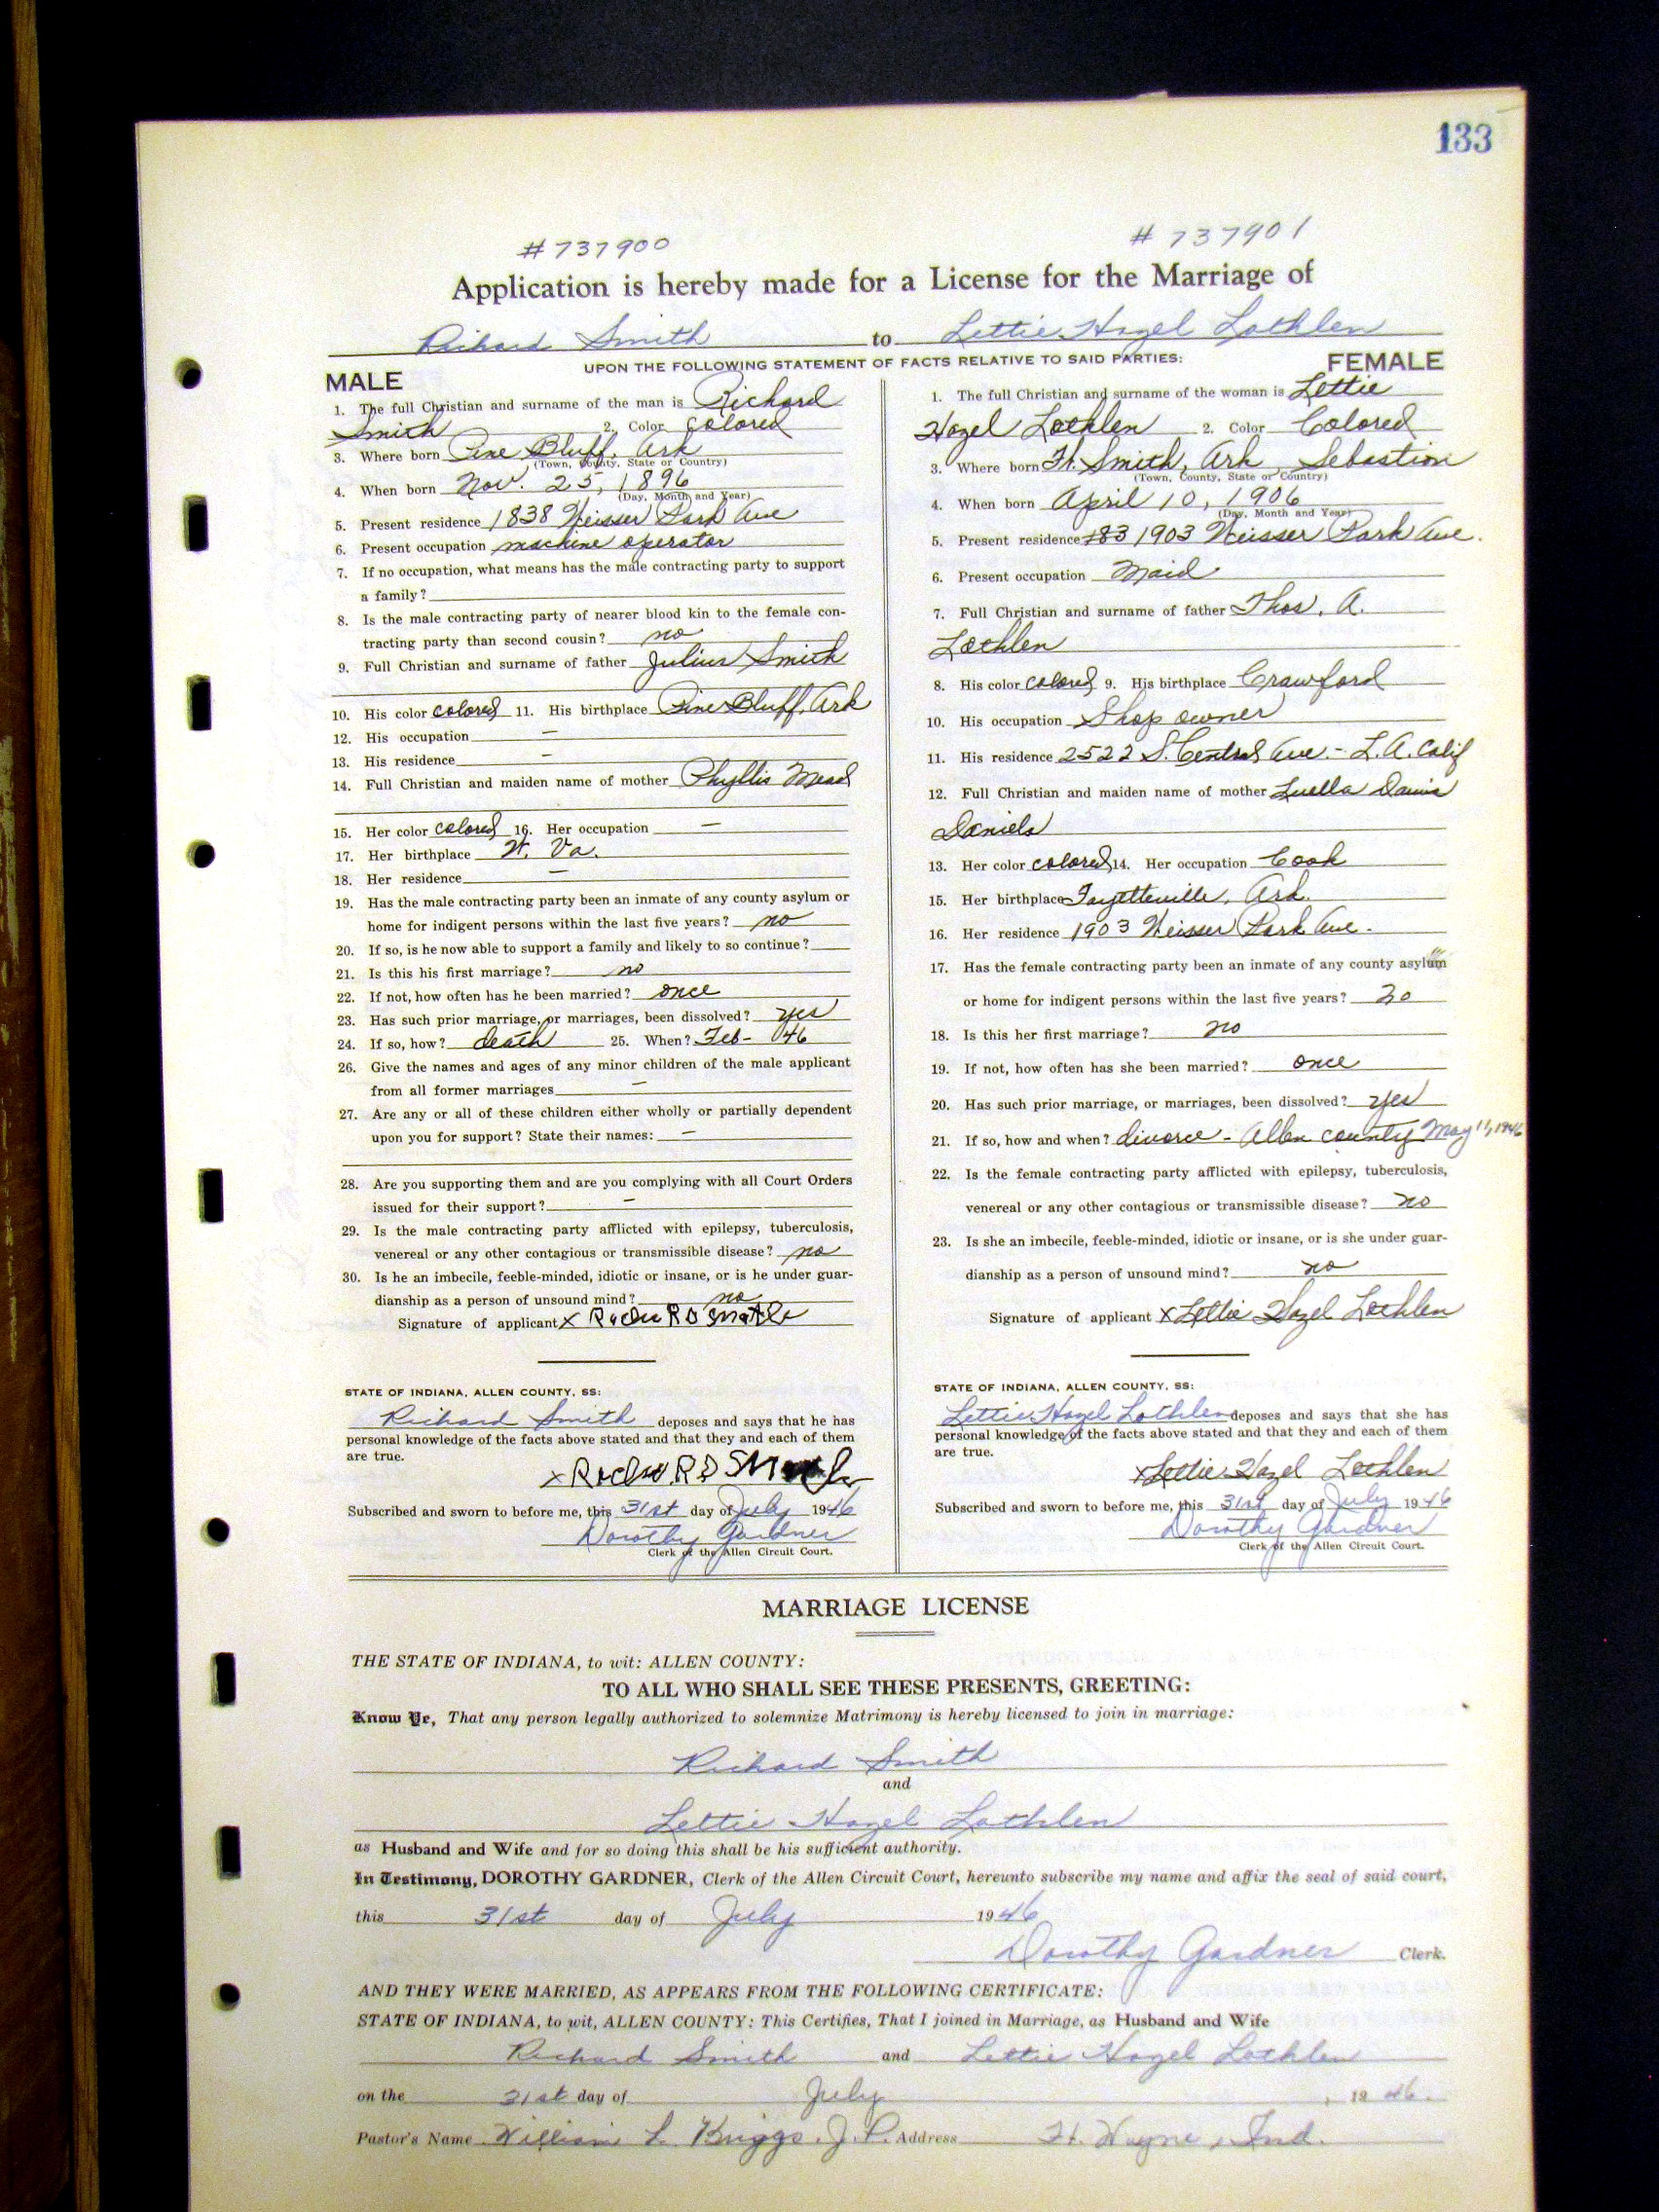 133
#737900 # 737901
Application is hereby made for a License for the Marriage of
Richard Smith to Lettie Hazel Lothlen
UPON THE FOLLOWING STATEMENT OF FACTS RELATIVE TO SAID PARTIES:
MALE
1. The full Christian and surname of the man is Richard
Smith 2. Color colored
3. Where born Pine Bluff, Ark
(Town, County, State or Country)
4. When born Nov. 25, 1896
(Day, Month and Year)
5. Present residence 1838 Weisser Park Ave
6. Present occupation machine operator
7. If no occupation, what means has the male contracting party to support
a family?
8. Is the male contracting party of nearer blood kin to the female con-
tracting party than second cousin? no
9. Full Christian and surname of father Julius Smith
10. His color colored 11. His birthplace Pine Bluff, Ark
12. His occupation –
13. His residence –
14. Full Christian and maiden name of mother Phyllis Mead
15. Her color colored 16. Her occupation –
17. Her birthplace W. Va.
18. Her residence –
19. Has the male contracting party been an inmate of any county asylum or
home for indigent persons within the last five years? no
20. If so, is he now able to support a family and likely to so continue?
21. Is this his first marriage? no
22. If not, how often has he been married? once
23. Has such prior marriage, or marriages, been dissolved? yes
24. If so, how? death 25. When? Feb- 46
26. Give the names and ages of any minor children of the male applicant
from all former marriages –
27. Are any or all of these children either wholly or partially dependent
upon you for support? State their names: –
28. Are you supporting them and are you complying with all Court Orders
issued for their support? –
29. Is the male contracting party afflicted with epilepsy, tuberculosis,
venereal or any other contagious or transmissible disease? no
30. Is he an imbecile, feeble-minded, idiotic or insane, or is he under guar-
dianship as a person of unsound mind? no
Signature of applicant X
STATE OF INDIANA, ALLEN COUNTY, SS:
Richard Smith deposes and says that he has
personal knowledge of the facts above stated and that they and each of them
are true.
X
Subscribed and sworn to before me, this 31st day of July 1946
Dorothy Gardner
Clerk of the Allen Circuit Court.
FEMALE
1. The full Christian and surname of the woman is Lettie
Hazel Lothlen 2. Color Colored
3. Where born Ft. Smith, Ark Sebastion
(Town, County, State or Country)
4. When born April 10, 1906
(Day, Month and Year)
5. Present residence 183 1903 Weisser Park Ave.
6. Present occupation Maid
7. Full Christian and surname of father Thos. A.
Lothlen
8. His color colored 9. His birthplace Crawford
10. His occupation Shop owner
11. His residence 2522 S. Central Ave. - L.A. Calif
12. Full Christian and maiden name of mother Luella
Daniels
13. Her color colored 14. Her occupation Cook
15. Her birthplace Fayetteville, Ark.
16. Her residence 1903 Weisser Park Ave.
17. Has the female contracting party been an inmate of any county asylum
or home for indigent persons within the last five years? no
18. Is this her first marriage? no
19. If not, how often has she been married? once
20. Has such prior marriage, or marriages, been dissolved? yes
21. If so, how and when? divorce - Allen county May 11, 1946
22. Is the female contracting party afflicted with epilepsy, tuberculosis,
venereal or any other contagious or transmissible disease? no
23. Is she an imbecile, feeble-minded, idiotic or insane, or is she under guar-
dianship as a person of unsound mind? no
Signature of applicant X Lettie Hazel Lothlen
STATE OF INDIANA, ALLEN COUNTY, SS:
Lettie Hazel Lothlen deposes and says that she has
personal knowledge of the facts above stated and that they and each of them
are true.
X Lettie Hazel Lothlen
Subscribed and sworn to before me, this 31st day of July 1946
Dorothy Gardner
Clerk of the Allen Circuit Court.
MARRIAGE LICENSE
THE STATE OF INDIANA, to wit: ALLEN COUNTY:
TO ALL WHO SHALL SEE THESE PRESENTS, GREETING:
Know Ye, That any person legally authorized to solemnize Matrimony is hereby licensed to join in marriage:
Richard Smith
and
Lettie Hazel Lothlen
as Husband and Wife and for so doing this shall be his sufficient authority.
In Testimony, DOROTHY GARDNER, Clerk of the Allen Circuit Court, hereunto subscribe my name and affix the seal of said court,
this 31st day of July 1946
Dorothy Gardner Clerk.
AND THEY WERE MARRIED, AS APPEARS FROM THE FOLLOWING CERTIFICATE:
STATE OF INDIANA, to wit, ALLEN COUNTY: This Certifies, That I joined in Marriage, as Husband and Wife
Richard Smith and Lettie Hazel Lothlen
on the 31st day of July, 1946.
Pastor's Name William L. Briggs. J.P. Address Ft. Wayne, Ind.